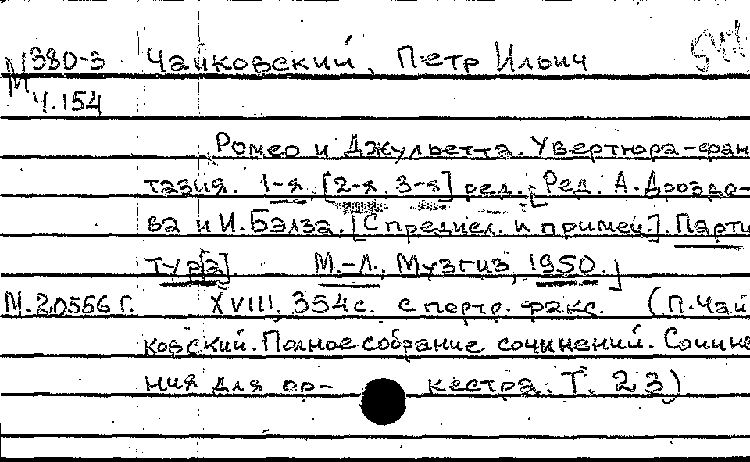 М 380-3 Чайковский, Петр Ильич
Ч.154
Ромео и Джульетта. Увертюра-фан
тазия. 1-я, [2-я, 3-я] ред. [Ред. А. Дроздо-
ва и И. Бэлза. [С предисл. и примеч.]. Парти
тур[а] М.-Л., Музгиз, 1950.]
М.20556 г. XVIII, 354 с. с портр. факс. (П. Чай
ковский. Полное собрание сочинений. Сочине
ния для ор- кестра. Т. 23)